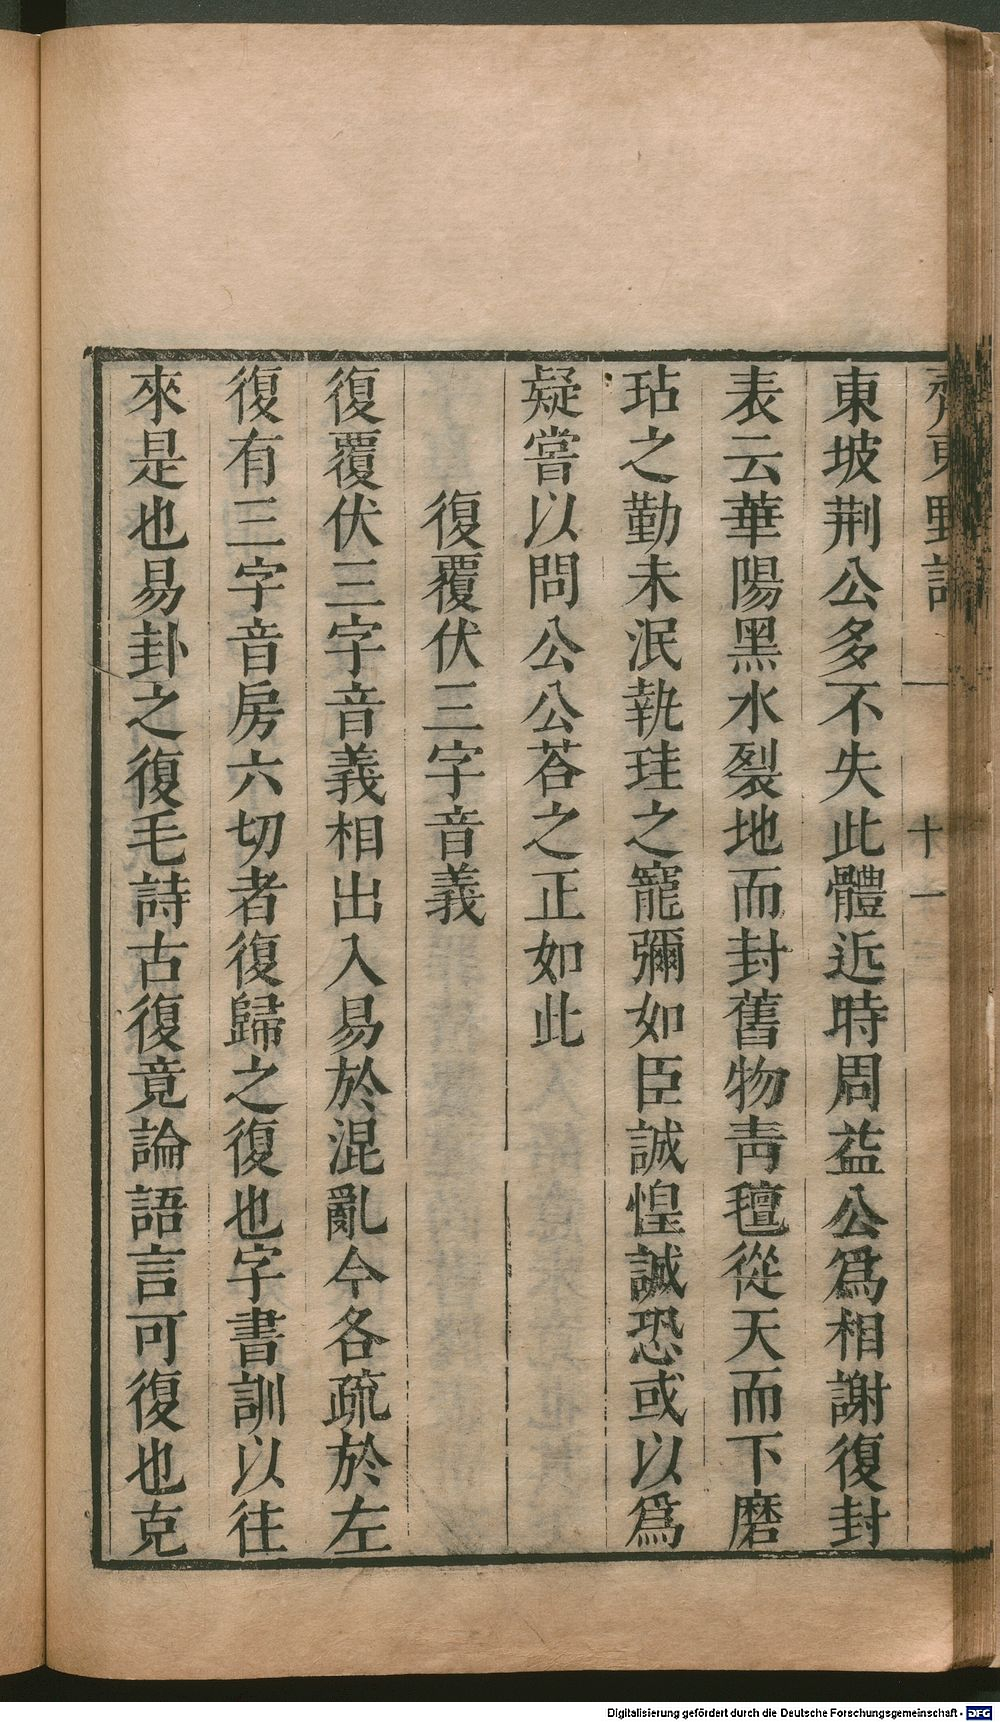 齊東野語 一 十一
東坡荆公多不失此體近時周益公爲相謝復封
表云華陽黑水裂地而封舊物靑氊從天而下磨
玷之勤未泯執珪之寵彌如臣誠惶誠恐或以爲
疑嘗以問公公荅之正如此
復覆伏三字音義
復覆伏三字音義相出入易於混亂今各疏於左
復有三字音房六切者復歸之復也字書訓以往
來是也易卦之復毛詩古復竟論語言可復也克
Digitalisierung gefördert durch die Deutsche Forschungsgemeinschaft - DFG